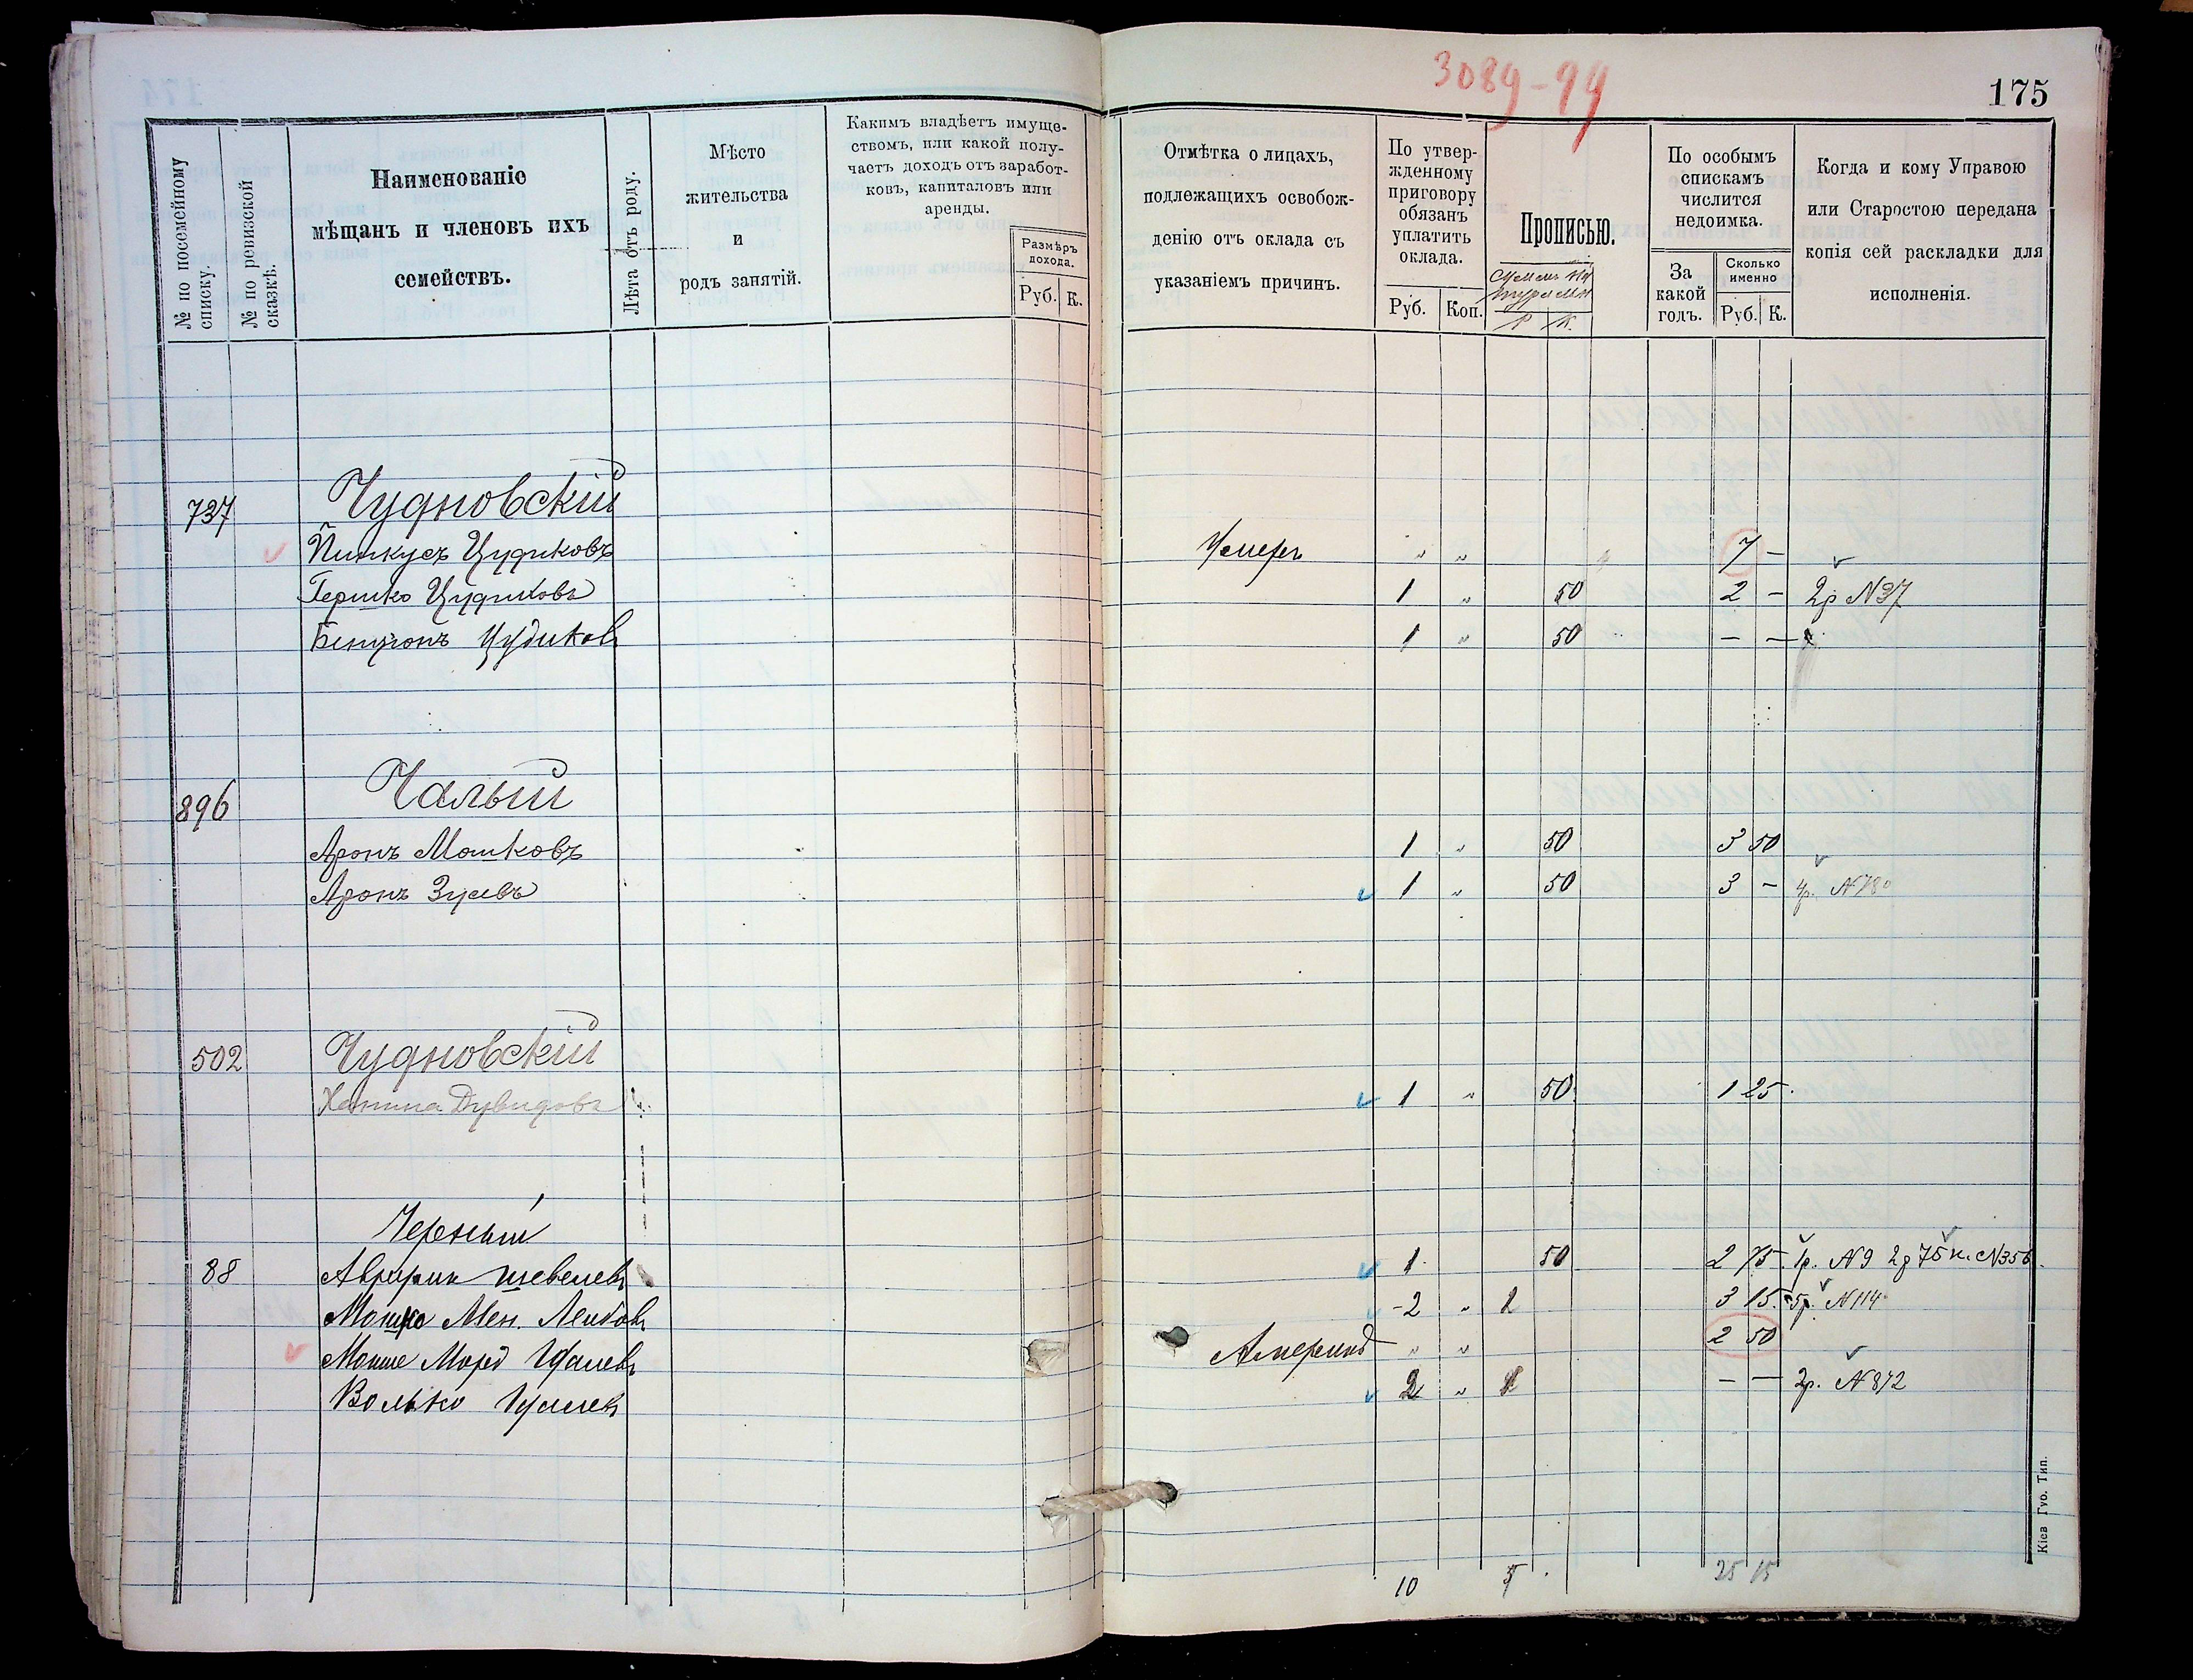 3089-99
175
№ по посемейному списку.
№ по ревизской сказкѣ.
Наименованіе
мѣщанъ и членовъ ихъ
семействъ.
Лѣта отъ роду.
Мѣсто
жительства
и
родъ занятій.
Какимъ владѣетъ имуще-
ствомъ, или какой полу-
чаетъ доходъ отъ заработ-
ковъ, капиталовъ или
аренды.
Размѣръ
дохода.
Руб. К.
Отмѣтка о лицахъ,
подлежащихъ освобож-
денію отъ оклада съ
указаніемъ причинъ.
По утвер-
жденному
приговору
обязанъ
уплатить
оклада.
Руб. Коп.
Прописью.
Р К.
По особымъ
спискамъ
числится
недоимка.
За
какой
годъ.
Сколько
именно
Руб. К.
Когда и кому Управою
или Старостою передана
копія сей раскладки для
исполненія.
737 Чудновскій
Пинкусъ Цудиковъ Умеръ " " 7 -
Гершко Цудиковъ 1 " 50 2 - 2р N37
Бенціонъ Цудиковъ 1 " 50 - -
896 Чалый
Аронъ Мошковъ 1 " 50 3 50
Аронъ Зусевъ 1 " 50 3 - 4р. N780
502 Чудновскій
Ханина Дувидовъ 1 " 50 1 25
Черный
88 Аврумъ Шевелевъ 1 50 2 75 1р. N9 2р 75к. N356
Мошко Мен. Лейбовъ -2 " 1 3 15 5р. N114
Моише Морд Ицалевъ Америкѣ " " 2 50
Волько Ицалевъ 2 " 1 - - 2р. N812
10 5 25 15
Кіев. Губ. Тип.